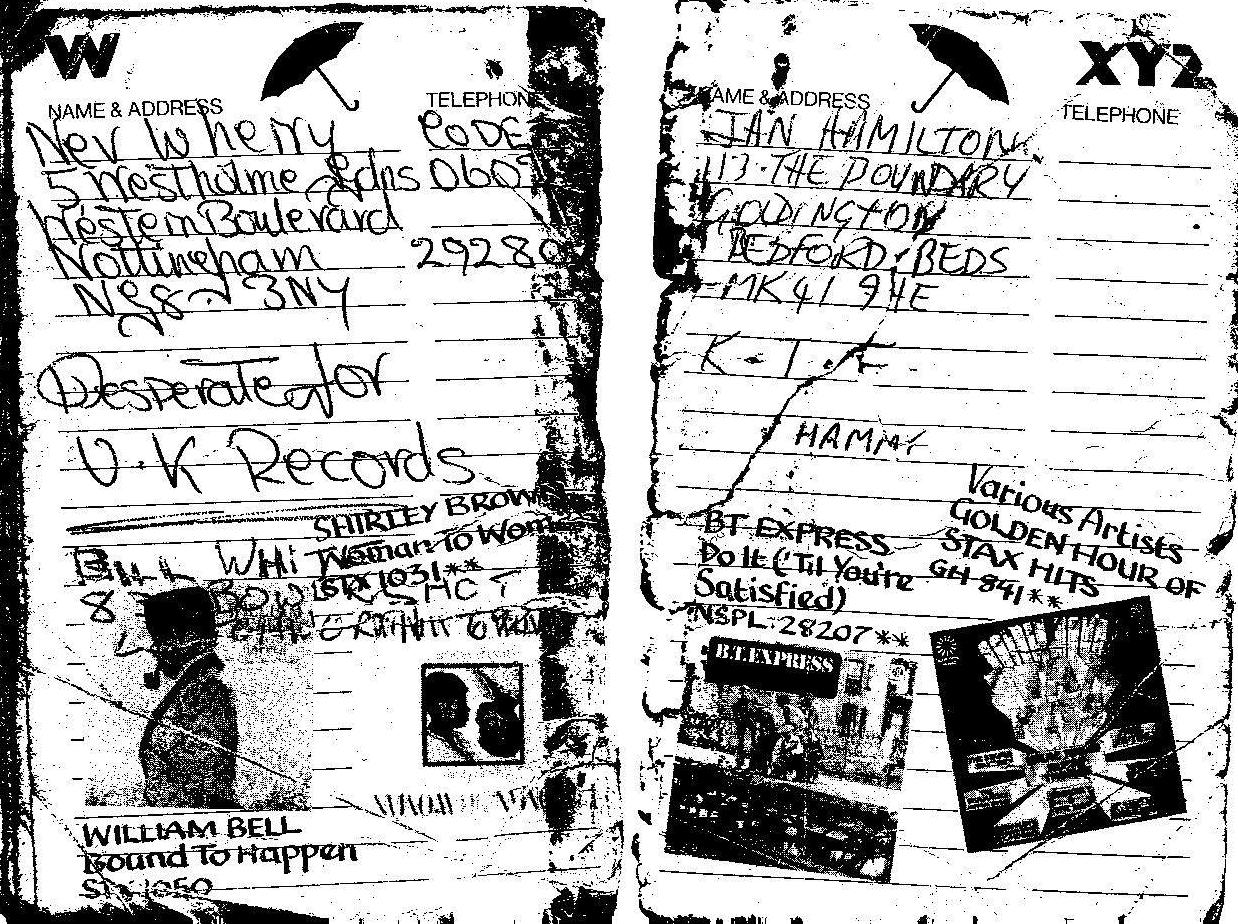 W
NAME & ADDRESS TELEPHONE
Nev Wherry CODE
5 Westholme Gdns 0602
Western Boulevard
Nottingham 29280
NG8 3NY
Desperate for
U.K Records
SHIRLEY BROWN
Woman To Wom
STX 1031**
BILL WHI
8
WILLIAM BELL
Bound To Happen
STX 1050
XYZ
NAME & ADDRESS TELEPHONE
IAN HAMILTON
113. THE BOUNDARY
GOLDINGTON
BEDFORD, BEDS
MK41 9HE
K-T-F
HAMMY
BT EXPRESS
Do It ('Til You're
Satisfied)
NSPL. 28207**
Various Artists
GOLDEN HOUR OF
STAX HITS
GH 841**
B.T. EXPRESS